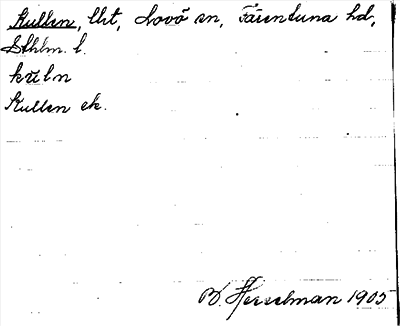 Kullen, lht, Lovö sn, Färentuna hd,
Sthlm. l.
Kullen ek.
B. Hesselman 1905